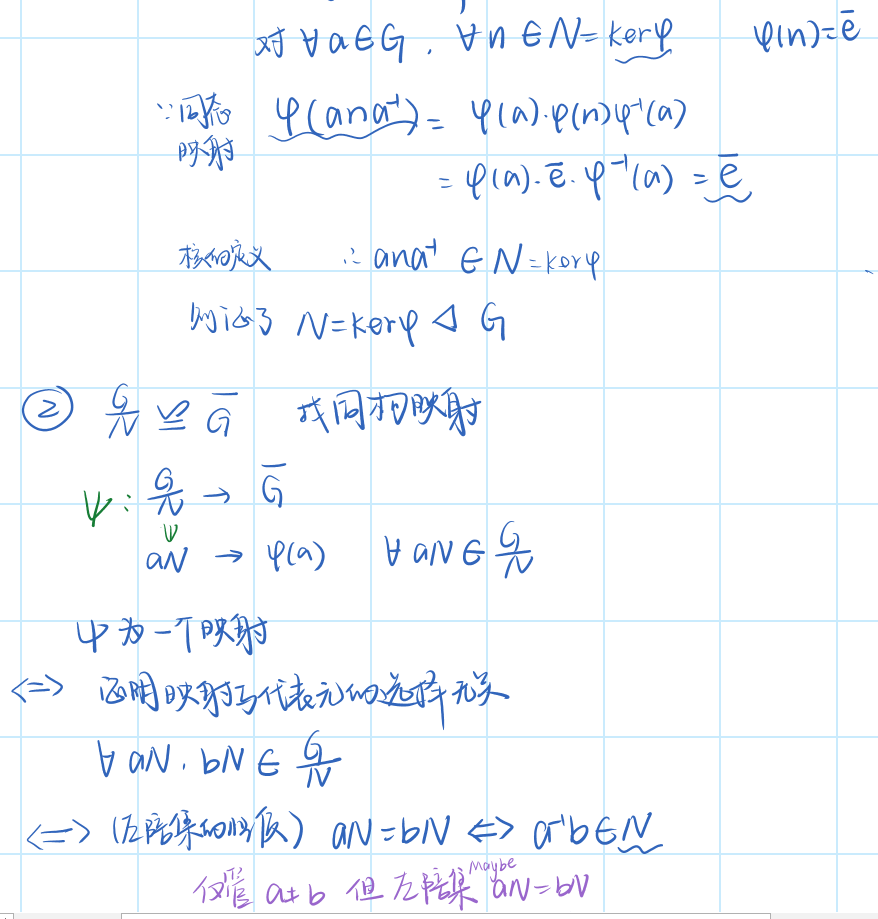 对 ∀a∈G, ∀n∈N=kerφ φ(n)=ē
∵同态映射 φ(ana⁻¹) = φ(a)·φ(n)φ⁻¹(a)
= φ(a)·ē·φ⁻¹(a) = ē
核的定义 ∴ ana⁻¹ ∈ N=kerφ
则证了 N=kerφ ◁ G
② G/N ≅ Ḡ 找同构映射
ψ: G/N → Ḡ
aN → φ(a) ∀aN∈G/N
ψ为一个映射
<=> 证明映射与代表元的选择无关
∀ aN, bN ∈ G/N
<=> (左陪集的性质) aN=bN <=> a⁻¹b∈N
尽管 a≠b 但左陪集 maybe aN=bN